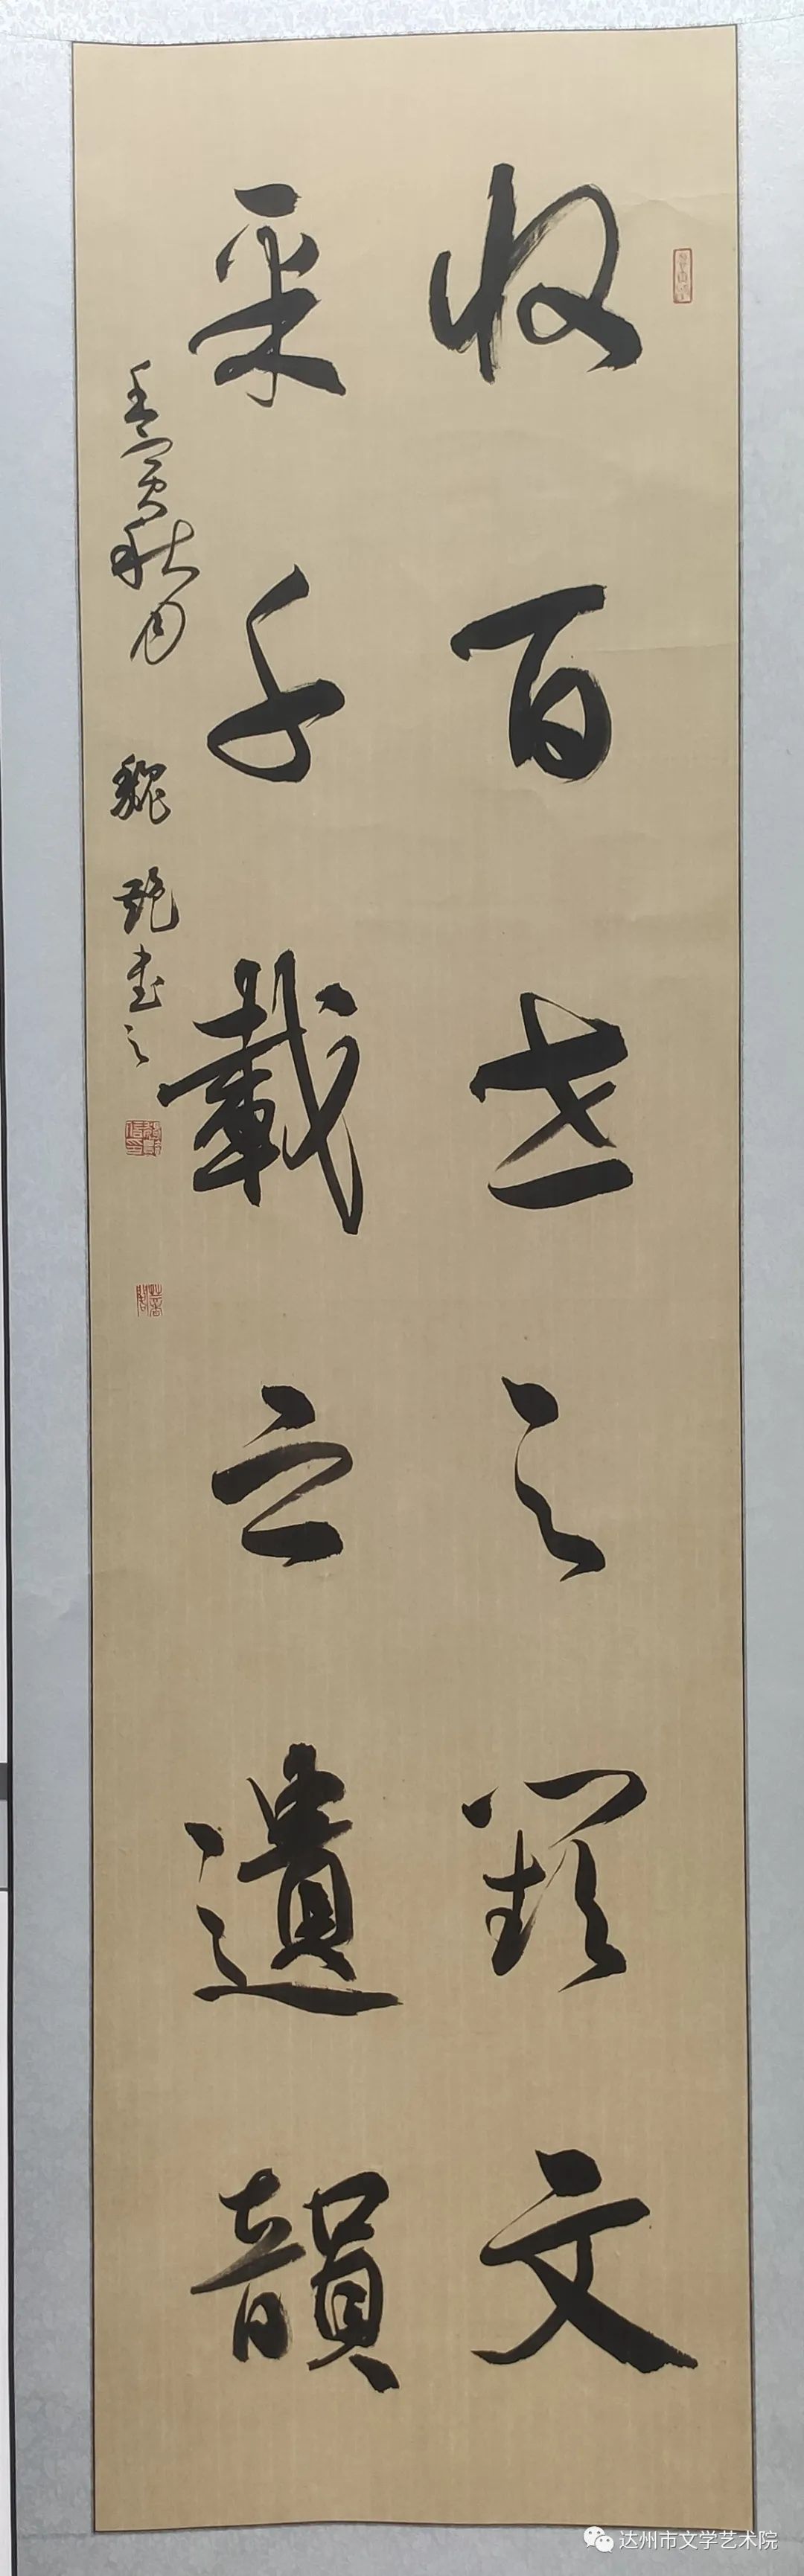 收百世之闕文
采千載之遺韻
壬寅秋月 魏艷書之
达州市文学艺术院